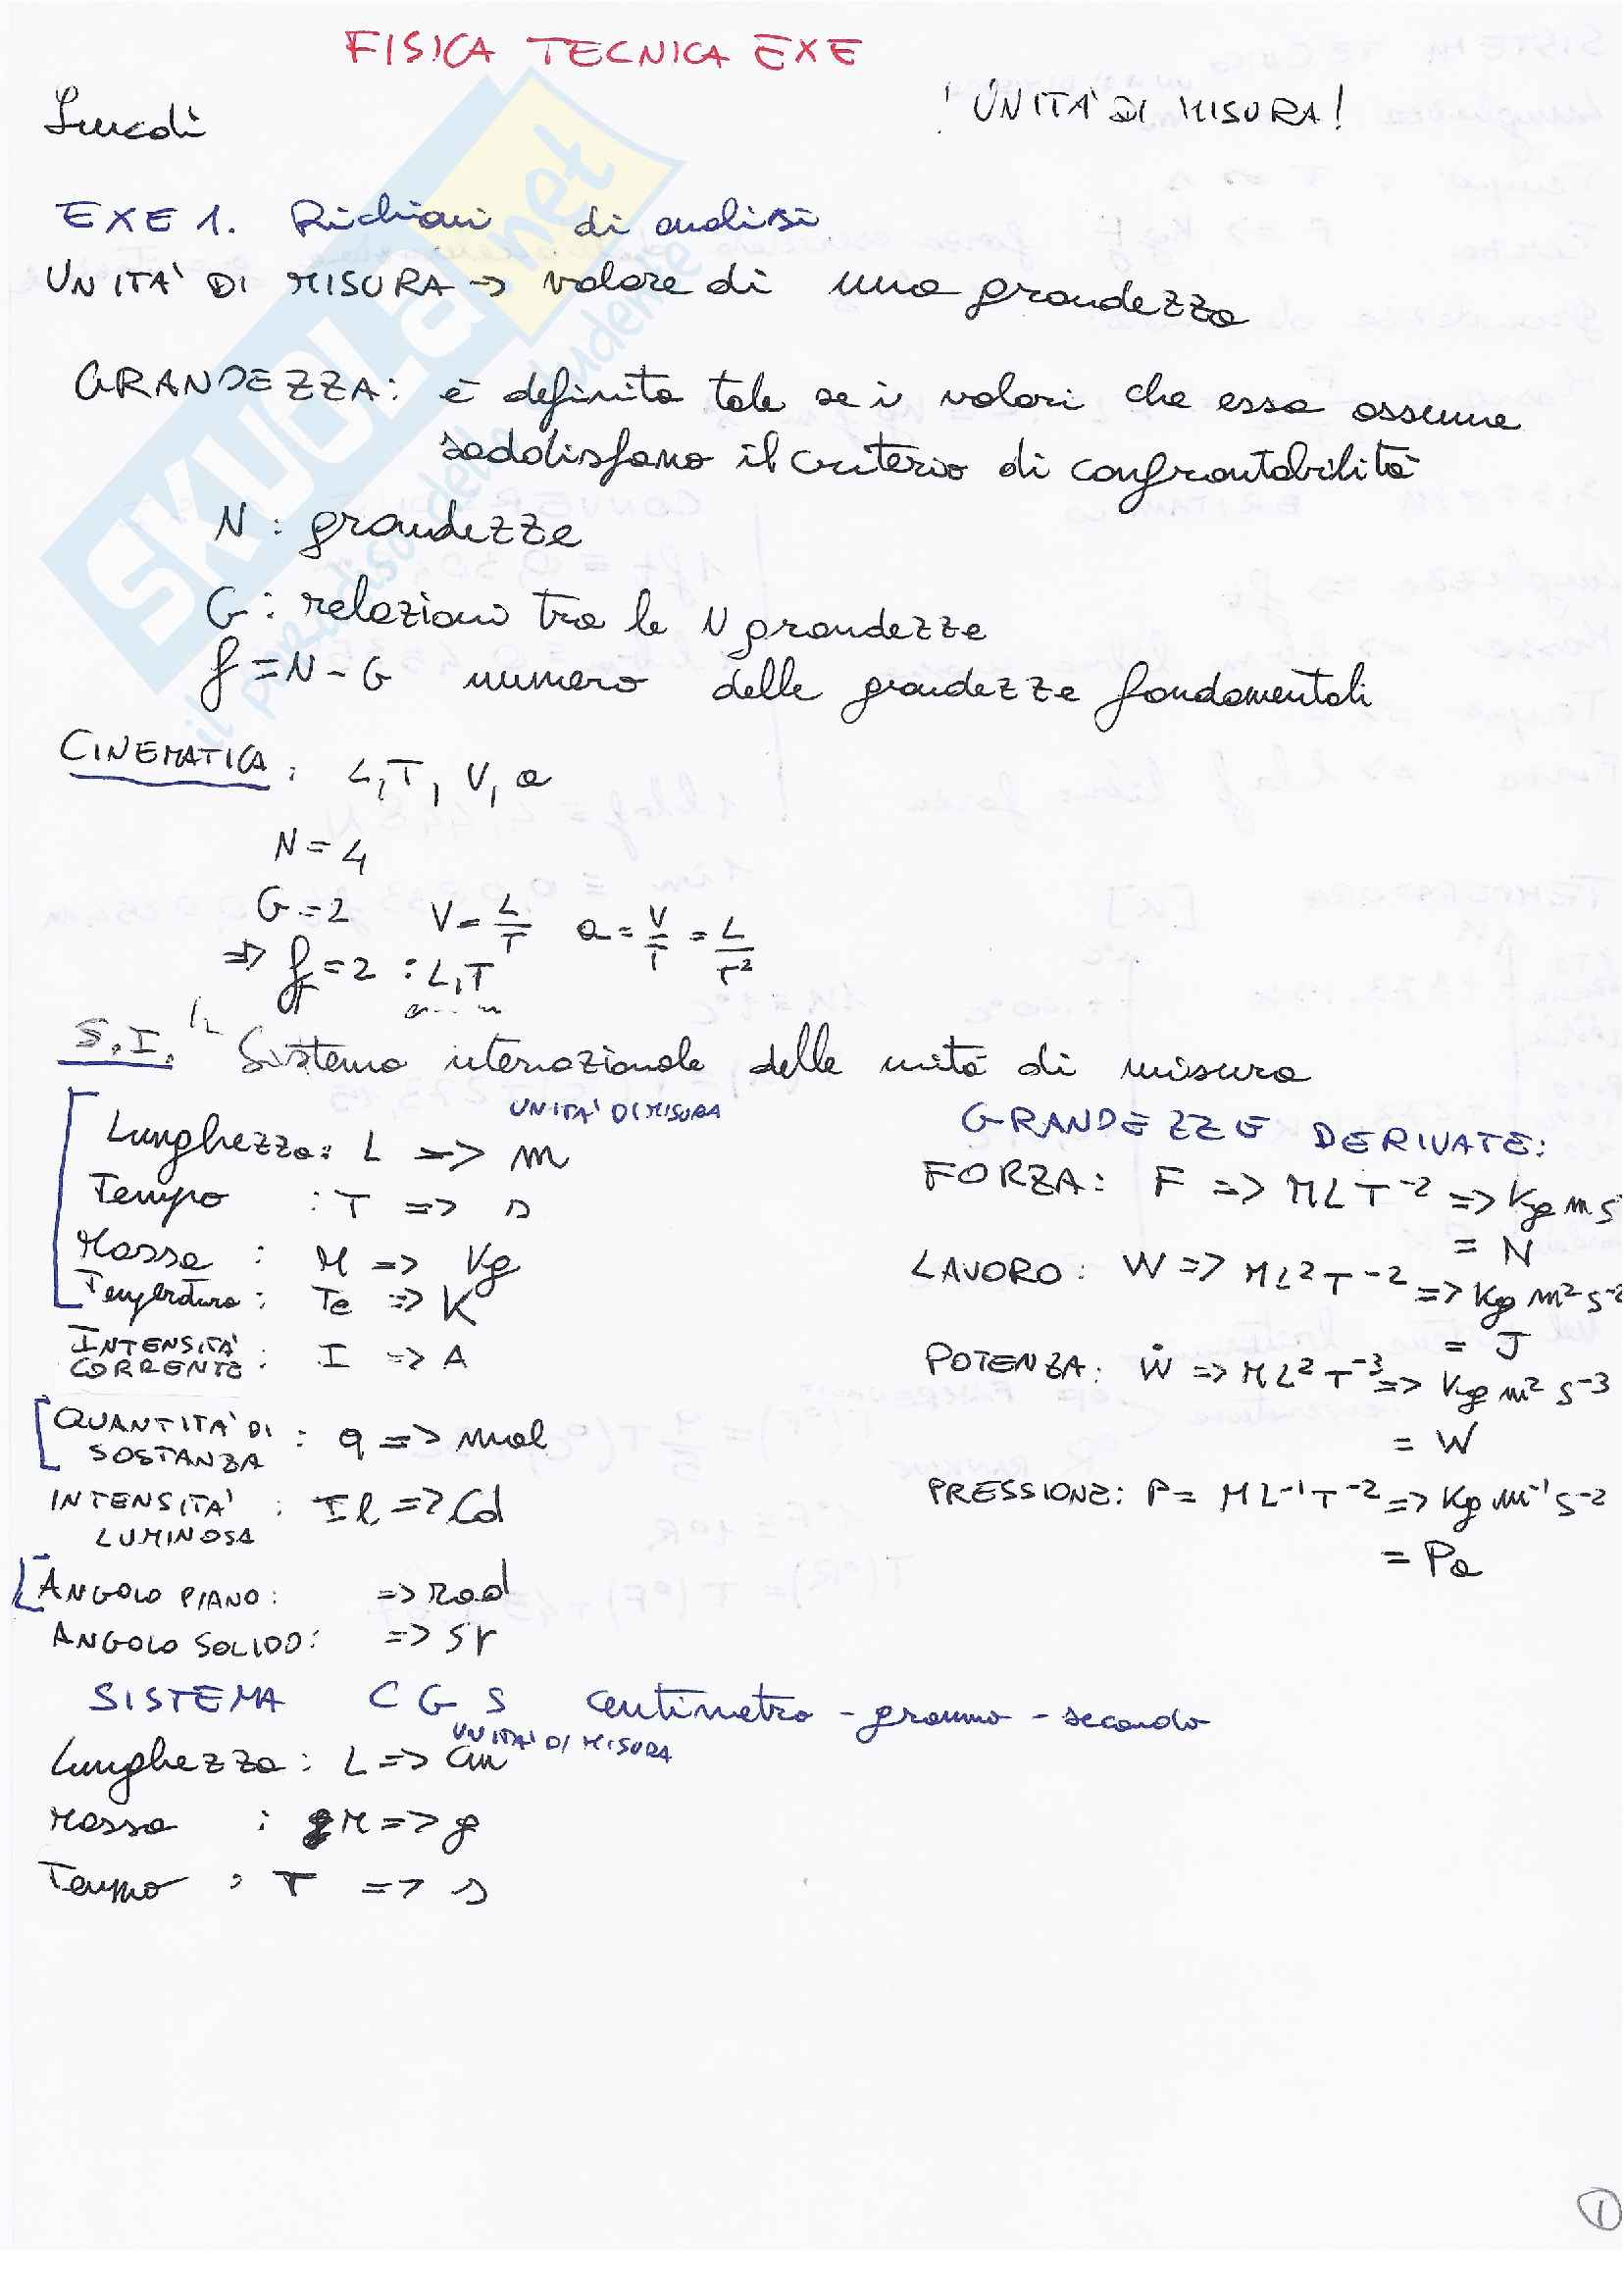 FISICA TECNICA EXE
! UNITA' DI MISURA!
EXE 1. Richiami di analisi
UNITA' DI MISURA -> valore di una grandezza
GRANDEZZA: è definita tale se i valori che essa assume
soddisfano il criterio di confrontabilità
N : grandezze
G : relazioni tra le N grandezze
f = N - G numero delle grandezze fondamentali
CINEMATICA: L, T, V, a
N = 4
G = 2 V = L/T a = V/T = L/T²
=> f = 2 : L, T
S.I. Sistema internazionale delle unità di misura
UNITA' DI MISURA
Lunghezza: L => m
Tempo : T => s
Massa : M => Kg
Temperatura : Te => K
INTENSITA'
CORRENTE : I => A
QUANTITA' DI
SOSTANZA : q => mol
INTENSITA'
LUMINOSA : Il => Cd
ANGOLO PIANO: => rad
ANGOLO SOLIDO: => sr
GRANDEZZE DERIVATE:
FORZA: F => M L T⁻² => Kg m s
= N
LAVORO: W => M L² T⁻² => Kg m² s⁻²
= J
POTENZA: Ẇ => M L² T⁻³ => Kg m² s⁻³
= W
PRESSIONE: P = M L⁻¹ T⁻² => Kg m⁻¹ s⁻²
= Pa
SISTEMA C G S centimetro - grammo - secondo
UNITA' DI MISURA
Lunghezza : L => cm
Massa : M => g
Tempo : T => s
1
SKUOLA.net
il paradiso dello studente